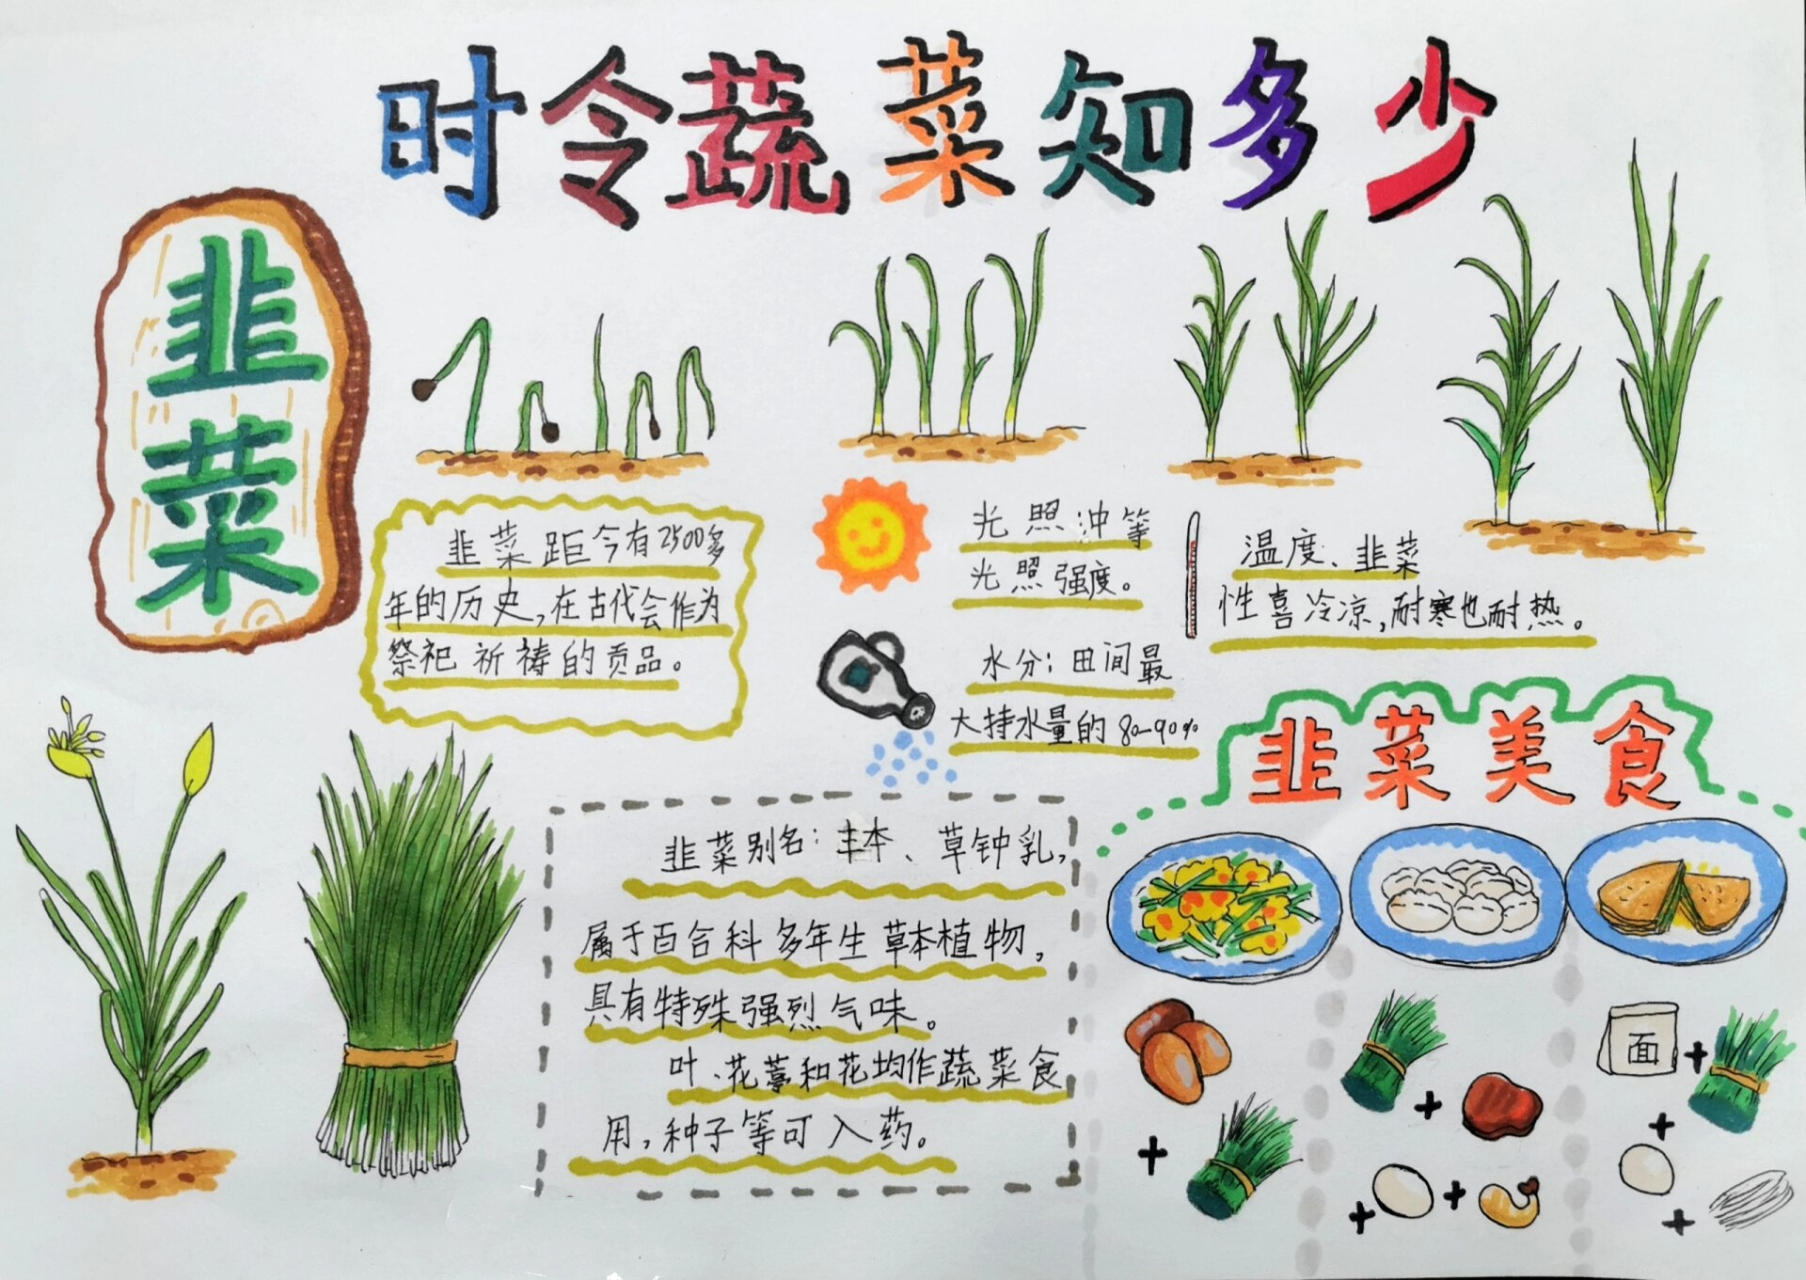 时令蔬菜知多少
韭菜
韭菜距今有2500多
年的历史,在古代会作为
祭祀祈祷的贡品。
光照冲等
光照强度。
水分:田间最
大持水量的80-90%
温度、韭菜
性喜冷凉,耐寒也耐热。
韭菜美食
韭菜别名:丰本、草钟乳,
属于百合科多年生草本植物,
具有特殊强烈气味。
叶、花葶和花均作蔬菜食
用,种子等可入药。
面